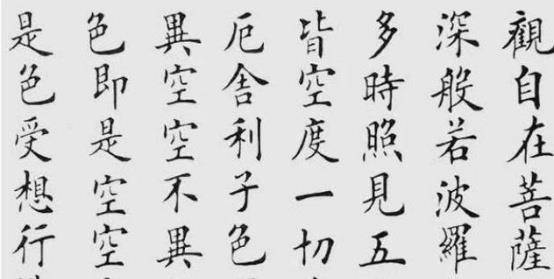 觀自在菩薩
深般若波羅
多時照見五
皆空度一切
厄舍利子色
異空空不異
色即是空空
是色受想行